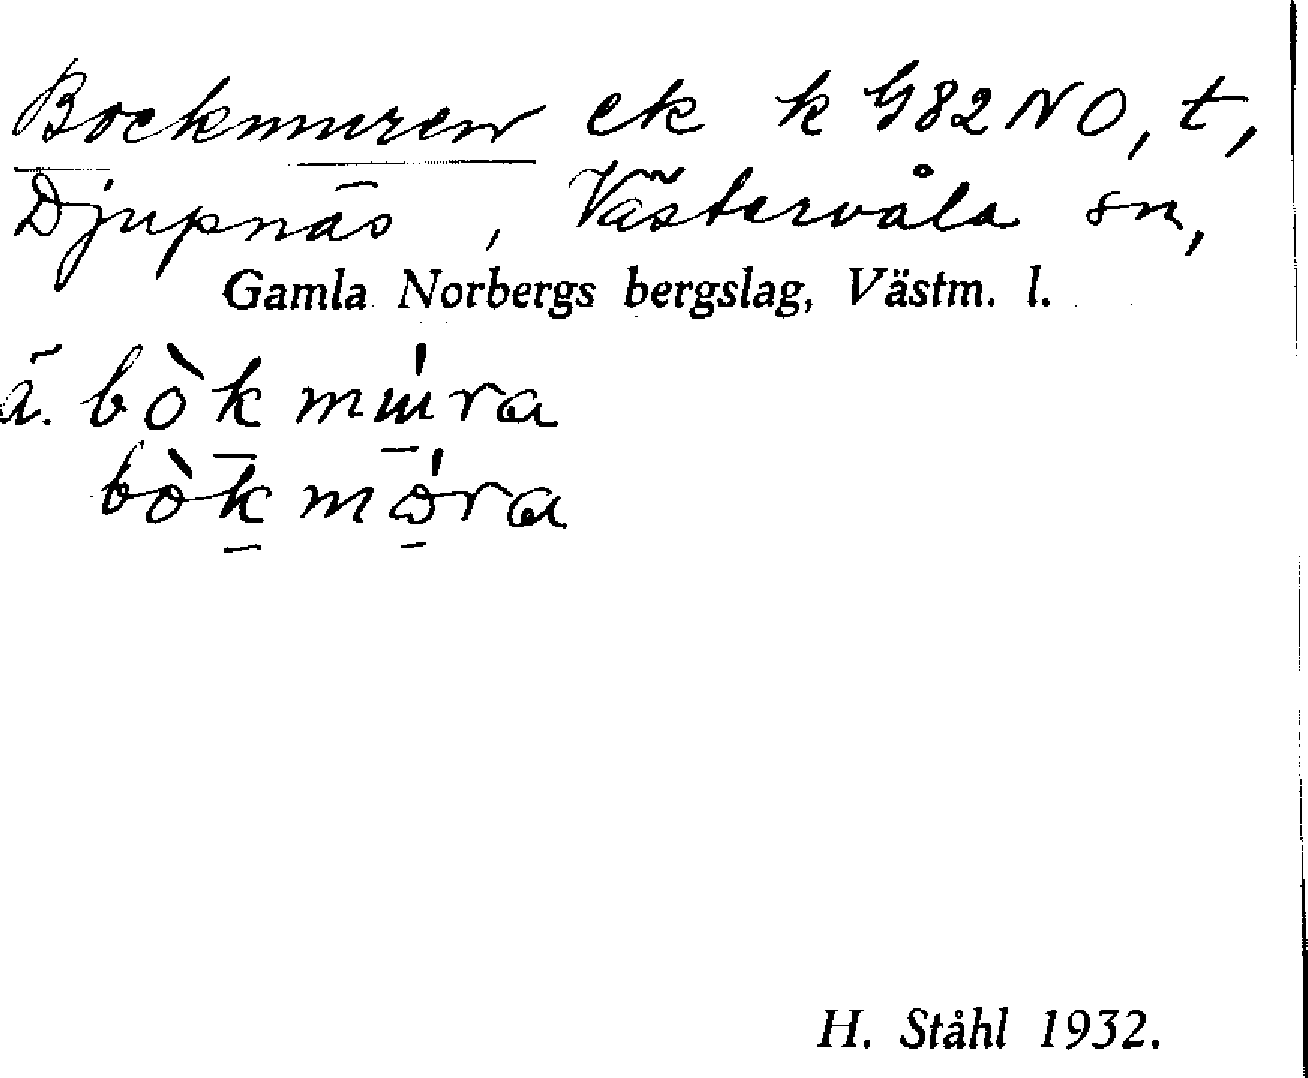 Bockmuren ek k G82NO, t,
Djupnäs, Västervåla sn,
Gamla Norbergs bergslag, Västm. l.
ä. bòk múra
bòk móra
H. Ståhl 1932.